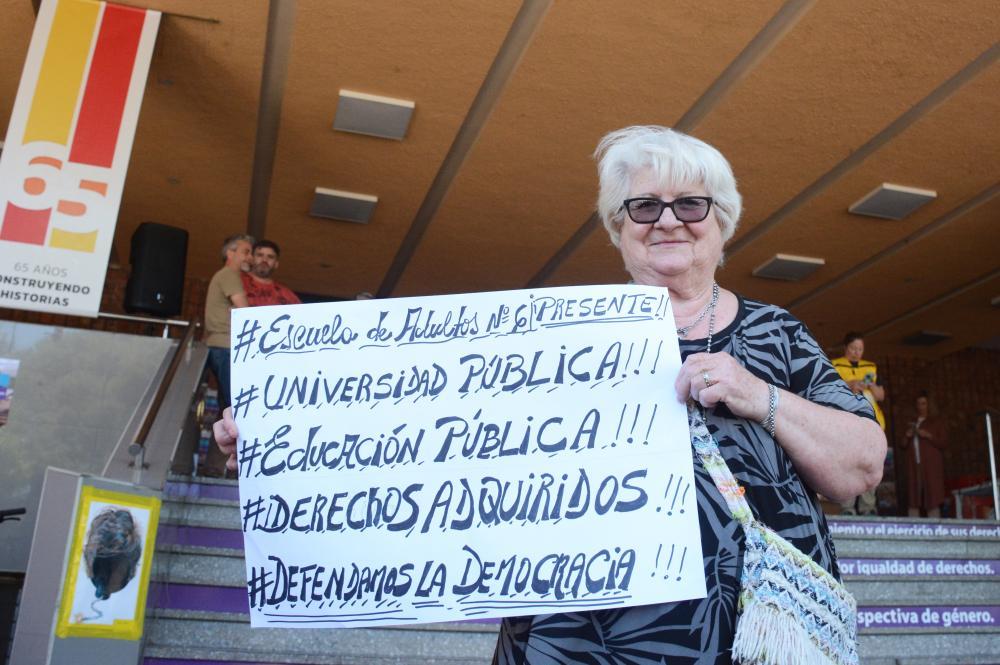 65
65 AÑOS
CONSTRUYENDO
HISTORIAS
# Escuela de Adultos Nº 6 ¡PRESENTE!!
# UNIVERSIDAD PÚBLICA!!!
# EDUCACIÓN PÚBLICA!!!
# ¡DERECHOS ADQUIRIDOS!!!
# DEFENDAMOS LA DEMOCRACIA!!!
miento y el ejercicio de sus derec
por igualdad de derechos.
spectiva de género.